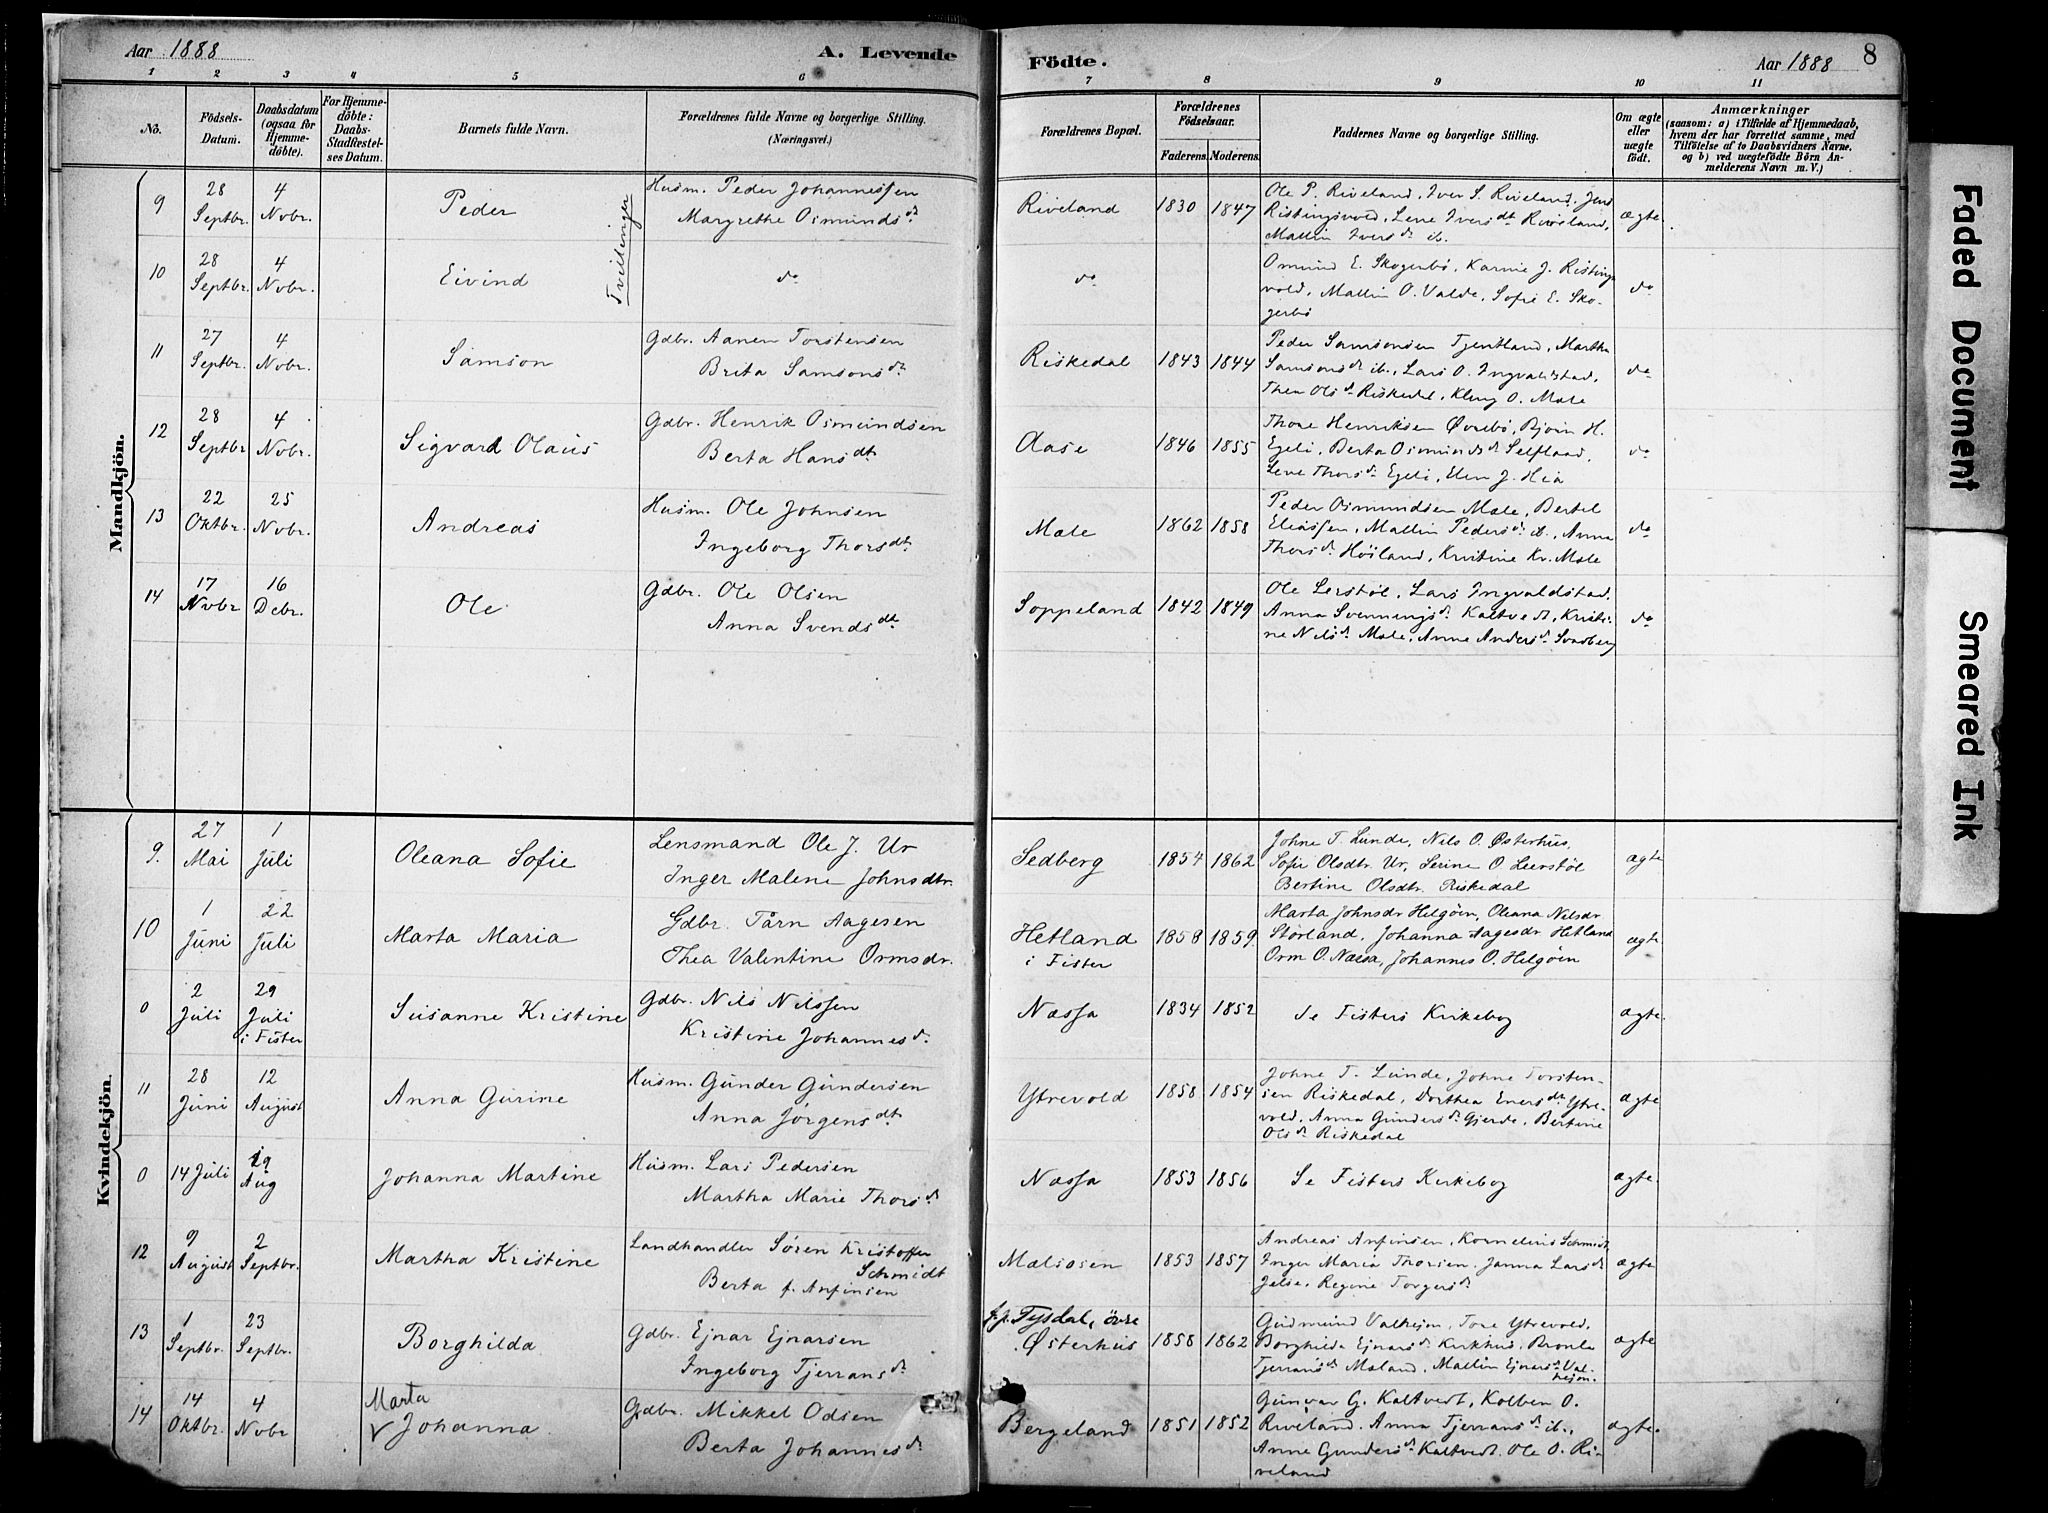 Aar 1888
A. Levende
Födte.
Aar 1888
8
1 2 3 4 5 6 7 8 9 10 11
No.
Födsels-
Datum.
Daabsdatum
(ogsaa for
Hjemme-
döbte).
For Hjemme-
döbte:
Daabs-
Stadfæstel-
ses Datum.
Barnets fulde Navn.
Forældrenes fulde Navne og borgerlige Stilling.
(Næringsvei.)
Forældrenes Bopæl.
Forældrenes
Födselsaar.
Faderens. Moderens.
Faddernes Navne og borgerlige Stilling.
Om ægte
eller
uægte
födt.
Anmærkninger
(saasom: a) i Tilfælde af Hjemmedaab,
hvem der har forrettet samme, med
Tilföielse af to Daabsvidners Navne,
og b) ved uægtefödte Börn An-
melderens Navn m. V.)
Mandkjön.
9
28
Septbr.
4
Novbr.
Peder
Tvillinger
Husm. Peder Johannessen
Margrethe Osmundsdt
Riveland
1830 1847
Ole P. Riveland, Iver S. Riveland, Jens
Ristingsvold, Lene Iversdt Riveland,
Mallin Iversdt ib.
ægte.
10
28
Septbr.
4
Novbr.
Eivind
do
do
Osmund E. Skogerbø, Karine J. Ristings
vold, Mallin O. Valde, Sofie E. Sko-
gerbø
do
11
27
Septbr.
4
Novbr.
Samson
Gdbr. Aanen Torstensen
Brita Samsonsdt
Riskedal
1843 1844
Peder Samsonsen Tjentland, Martha
Samsonsdt ib., Lars O. Ingvaldstad,
Thea Olsdt Riskedal, Kleng O. Mæle
do
12
28
Septbr
4
Novbr.
Sigvard Olaus
Gdbr. Henrik Osmundsen
Berta Hansdt
Aase
1846 1855
Thore Henriksen Øvrebø, Bjørn H.
Egeli, Berta Osmundsdt
Lene Thorsdt Egeli, Elen J. Hia
do
13
22
Oktbr.
25
Novbr.
Andreas
Husm. Ole Johnsen
Ingeborg Thorsdt
Mæle
1862 1858
Peder Osmundsen Mæle, Bertel
Eliassen, Mallin Pedersdt ib., Anna
Thorsdt Høiland, Kristine Kr. Mæle
do
14
17
Novbr
16
Debr.
Ole
Gdbr. Ole Olsen
Anna Svendsdt
Soppeland
1842 1849
Ole Lerstøl, Lars Ingvaldstad,
Anna Svenningsdt Kaltvedt, Kristi-
ne Nilsdt Mæle, Anne Andersdt Svadberg
do
Kvindekjön.
9.
27
Mai
1
Juli
Oleana Sofie
Lensmand Ole J. Ur
Inger Malene Johnsdtr.
Sedberg
1854 1862
Johne T. Lunde, Nils O. Østerhus,
Sofie Olsdtr. Ur, Serine O. Leerstøl
Bertine Olsdtr. Riskedal
ægte
10
1
Juni
22
Juli
Marta Maria
Gdbr. Tårn Aagesen
Thea Valentine Ormsdr.
Hetland
i Fister
1858 1859.
Marta Johnsdr Helgøen, Oleana Nilsdr
Størland, Johanna Aagesdr Hetland
Orm O. Næssa, Johannes O. Helgøen
ægte.
0
2
Juli
29
Juli
i Fister
Susanne Kristine
Gdbr. Nils Nilssen
Kristine Johannesdt.
Næssa
1834 1852
Se Fisters Kirkebog
ægte.
11
28
Juni
12
August
Anna Gurine
Husm. Gunder Gundersen
Anna Jørgensdt
Ytrevold
1858 1854
Johne T. Lunde, Johne Torsten-
sen Riskedal, Dorthea Enersdt Ytre-
vold, Anna Gundersdt Gjerde, Bertine
Olsdt Riskedal
ægte
0
14 Juli
19
Aug
Johanna Martine
Husm. Lars Pedersen
Martha Marie Thorsdt
Næssa
1853 1856
Se Fisters Kirkebog
ægte.
12
9
August
2
Septbr.
Martha Kristine
Landhandler Søren Kristoffer
Schmidt
Berta f. Anfinsen
Mælsosen
1853 1857
Andreas Anfinsen, Kornelius Schmidt,
Inger Maria Thorsen, Janna Larsdt
Jelse, Regine Torgersdt
ægte
13
1
Septbr.
23
Septbr.
Borghilda
Gdbr. Ejnar Ejnarsen
Ingeborg Tjerransdt
f.p. Tysdal, övre
Østerhus
1858 1862
Gudmund Valheim, Tore Ytrevold,
Borghilda Ejnarsdt Kirkhus, Bronla
Tjerransdt Mæland, Mallin Ejnarsdt Val-
hejm.
ægte
14
14
Oktbr.
4
Novbr
Marta
✓ Johanna
Gdbr. Mikkel Odsen
Berta Johannesdt
Bergeland
1851 1852
Gunvar G. Kaltvedt, Kolben O.
Riveland. Anna Tjerransdt ib.,
Anne Gundersdt Kaltvedt. Ole O. Ri-
veland
ægte.
Faded Document
Smeared Ink